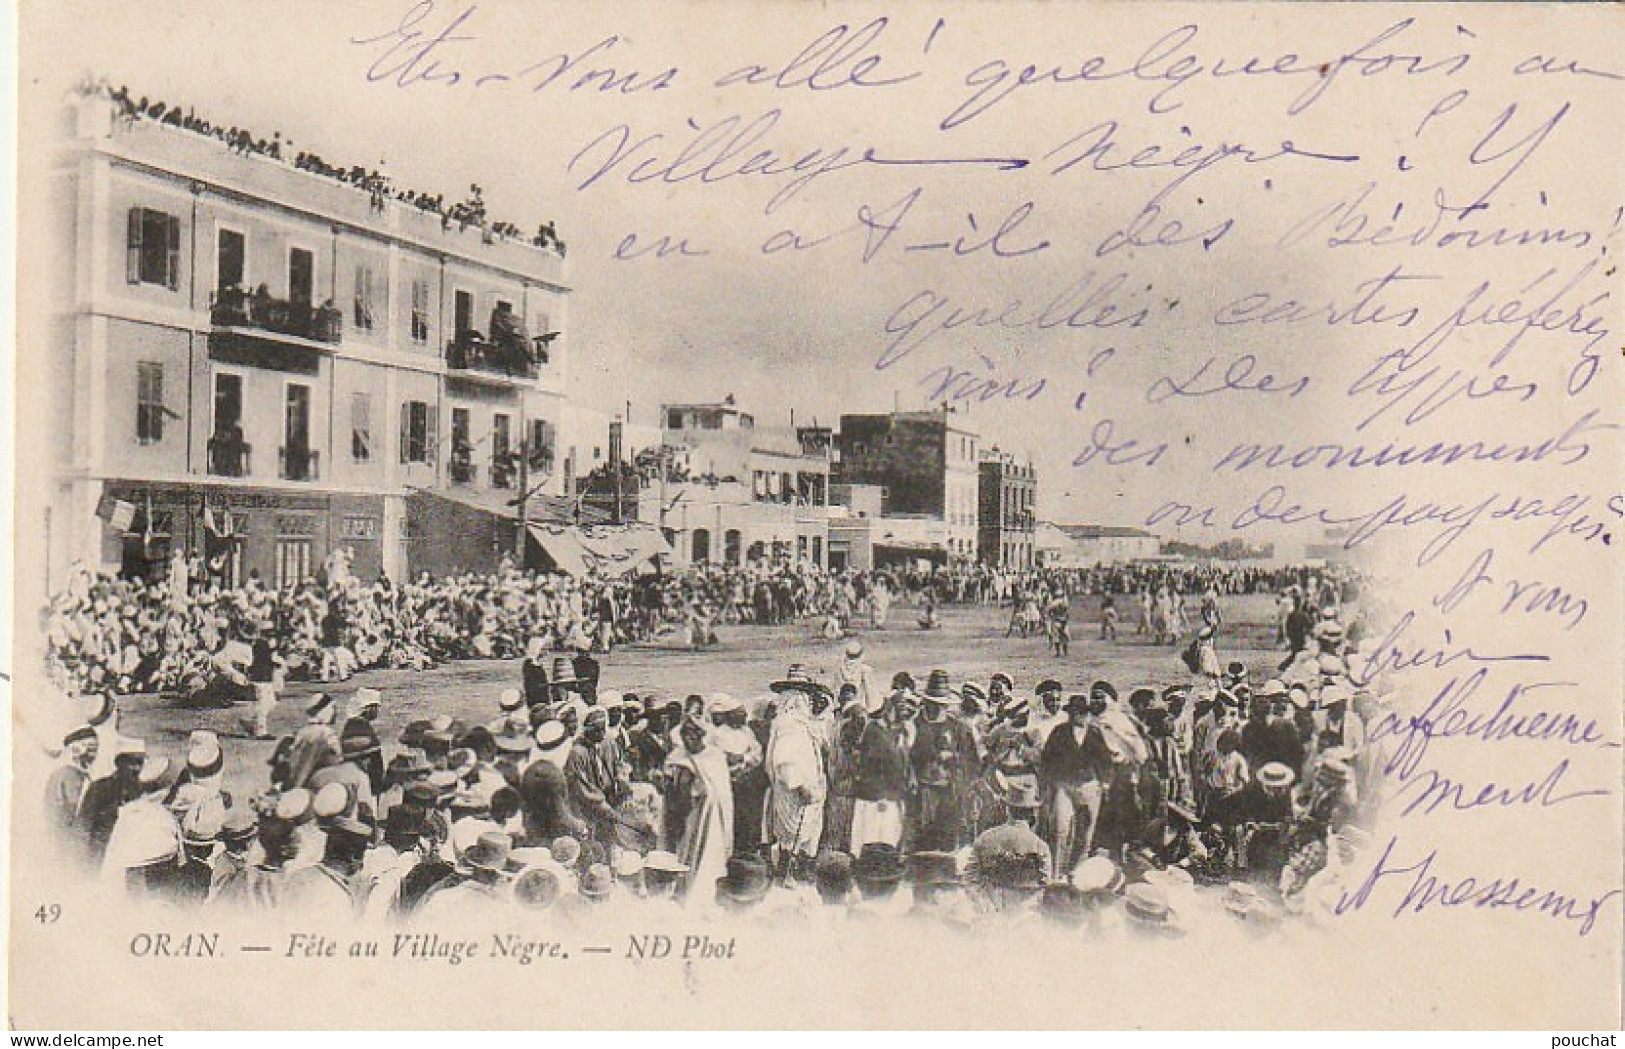 Etes-vous allé quelquefois au
Village Nègre? Y
en a-t-il des Bédouins?
quelles cartes préférez
vous? Des types
des monuments
ou des paysages?
A vous
bien
affectueuse-
ment
49
ORAN. — Fête au Village Nègre. — ND Phot
delcampe.net
pouchat